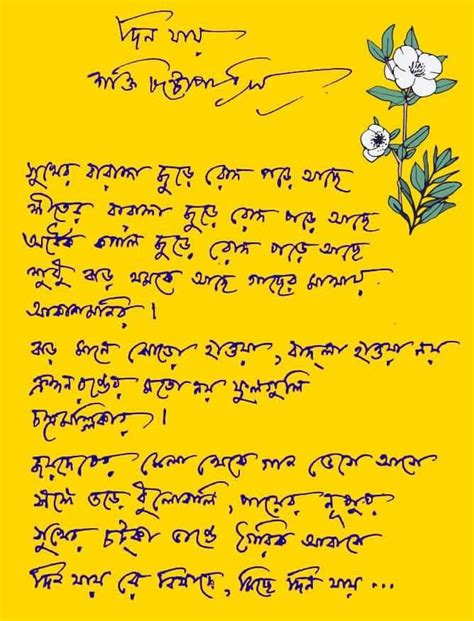 দিন যায়
শক্তি চট্টোপাধ্যায়
সুখের বারান্দা জুড়ে রোদ পড়ে আছে
শীতের বারান্দা জুড়ে রোদ পড়ে আছে
অর্ধেক কপাল জুড়ে রোদ পড়ে আছে
শুধু ঝড় থমকে আছে গাছের মাথায়
আকাশমনির ।
ঝড় মানে ঝোড়ো হাওয়া, বাদ্‌লা হাওয়া নয়
ক্রন্দনরঙের মতো নয় ফুলগুলি
চন্দ্রমল্লিকার ।
জয়দেবের মেলা থেকে গান ভেসে আসে
সঙ্গে ওড়ে ধুলোবালি, পায়ের নূপুর
সুখের চট্‌কা ভাঙে গৈরিক আবাসে
দিন যায় রে বিষাদে, মিছে দিন যায় ...